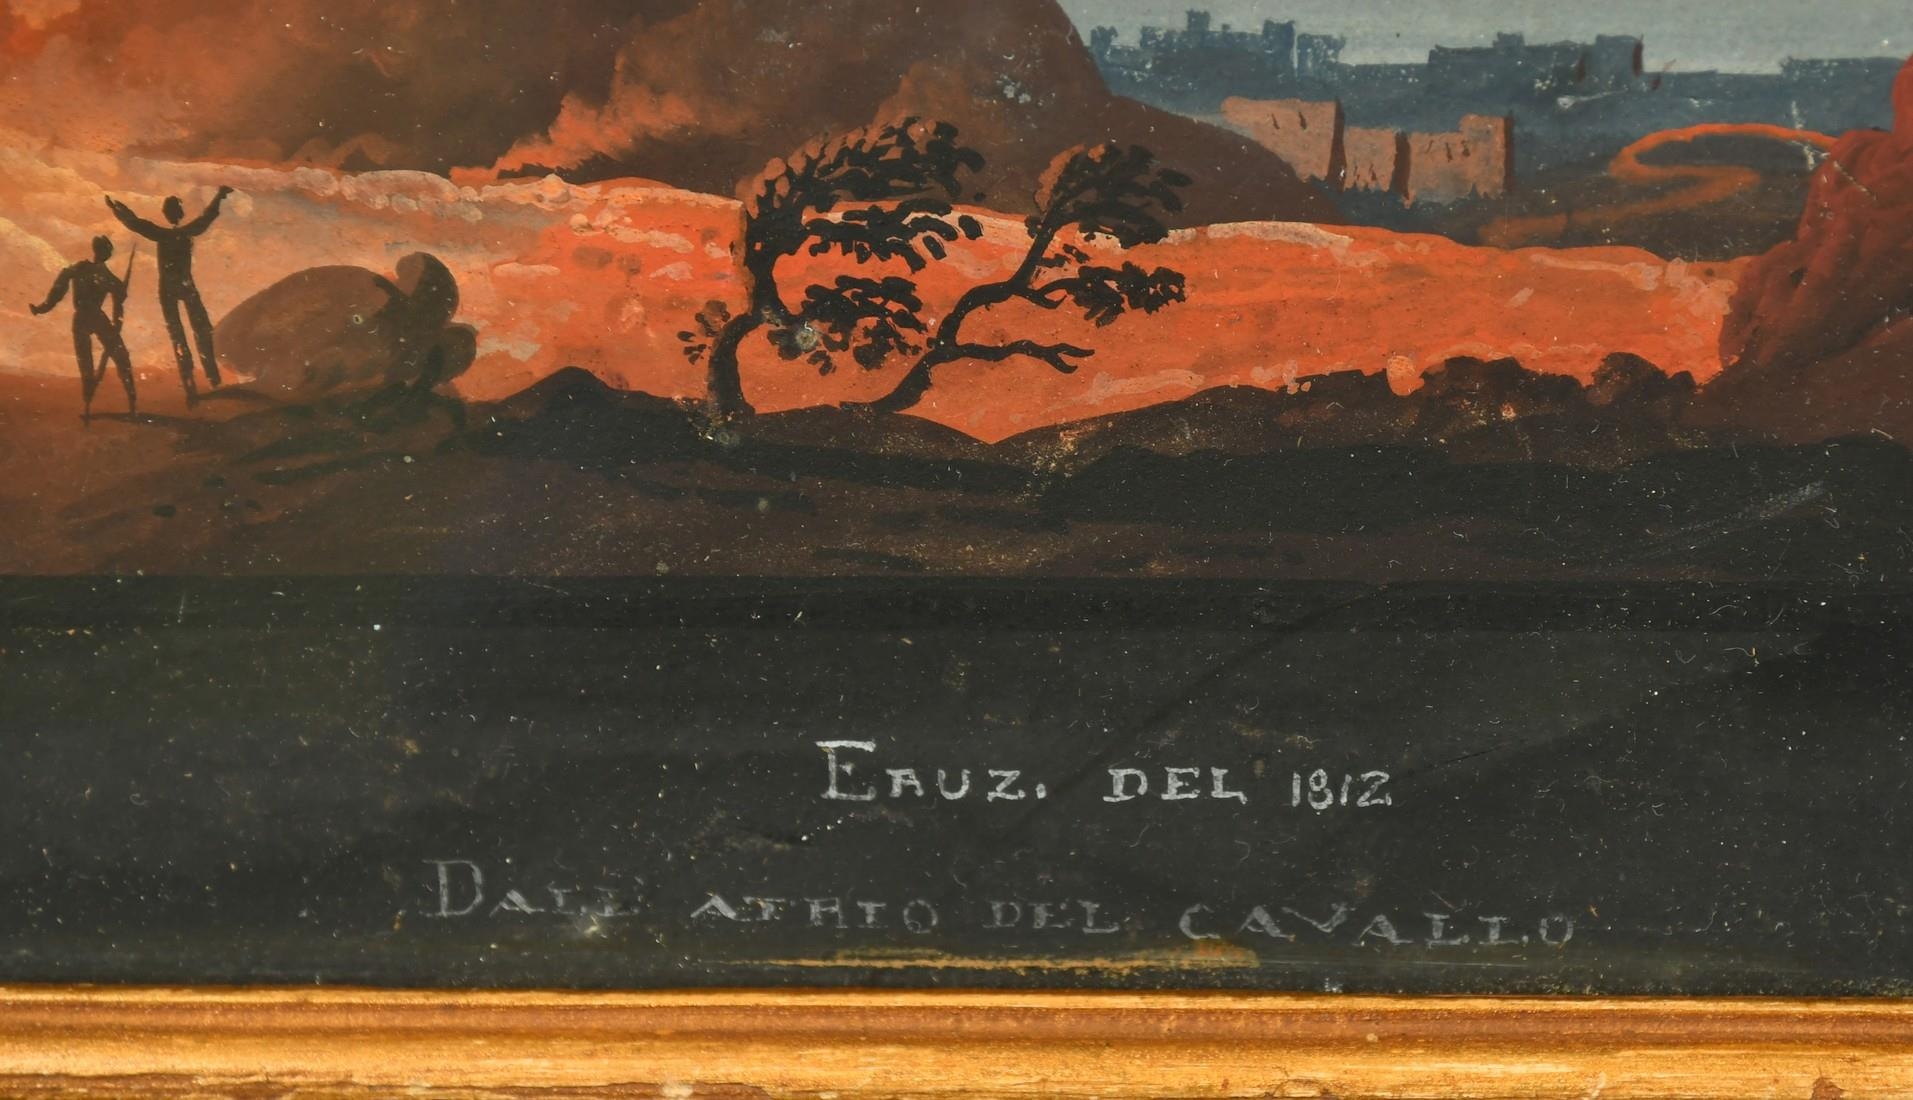 ERUZ. DEL 1812
DALL' ATRIO DEL CAVALLO